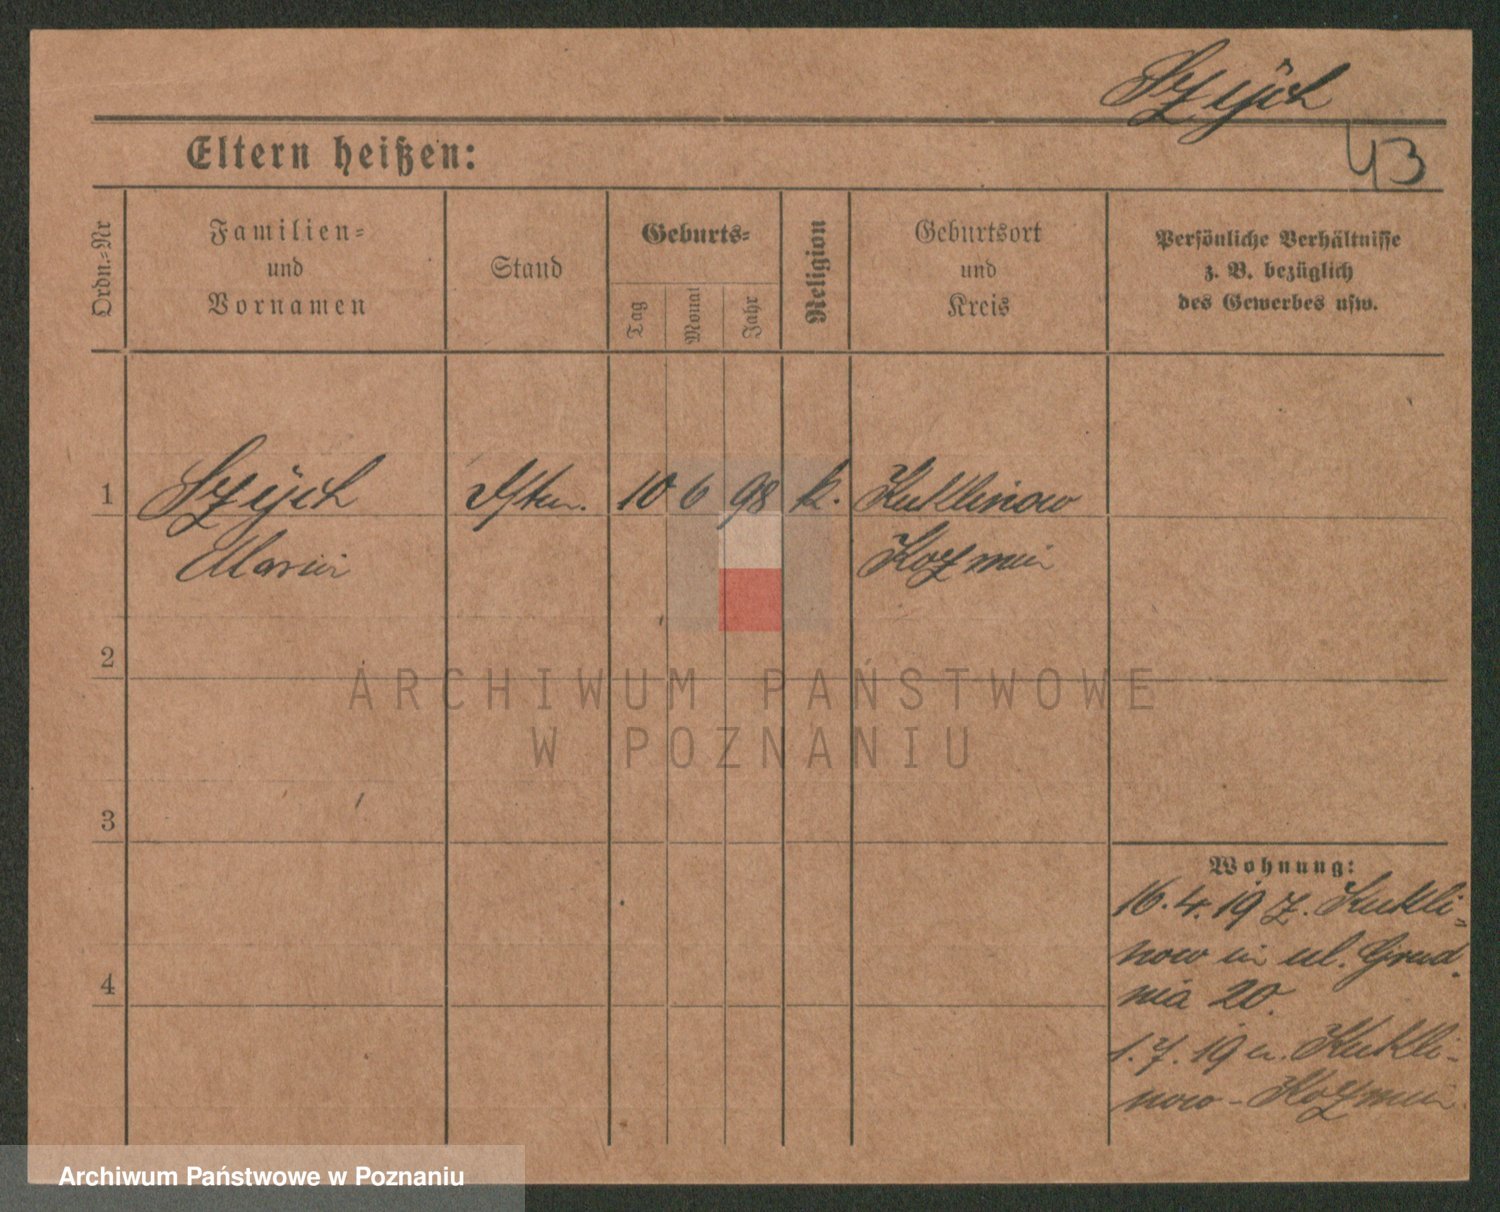 Szÿch
43
Eltern heißen:
Ordn.-Nr
Familien-
und
Vornamen
Stand
Geburts-
Tag
Monat
Jahr
Religion
Geburtsort
und
Kreis
Persönliche Verhältnisse
z. B. bezüglich
des Gewerbes usw.
1
Szÿch
10
6
98
k.
Kuklinow
Kozmin
2
ARCHIWUM PAŃSTWOWE
W POZNANIU
3
Wohnung:
16.4.19 z. Kukli-
now in ul. Grud
nia 20.
4
1.7.19 n. Kukli-
now - Kozmin
Archiwum Państwowe w Poznaniu